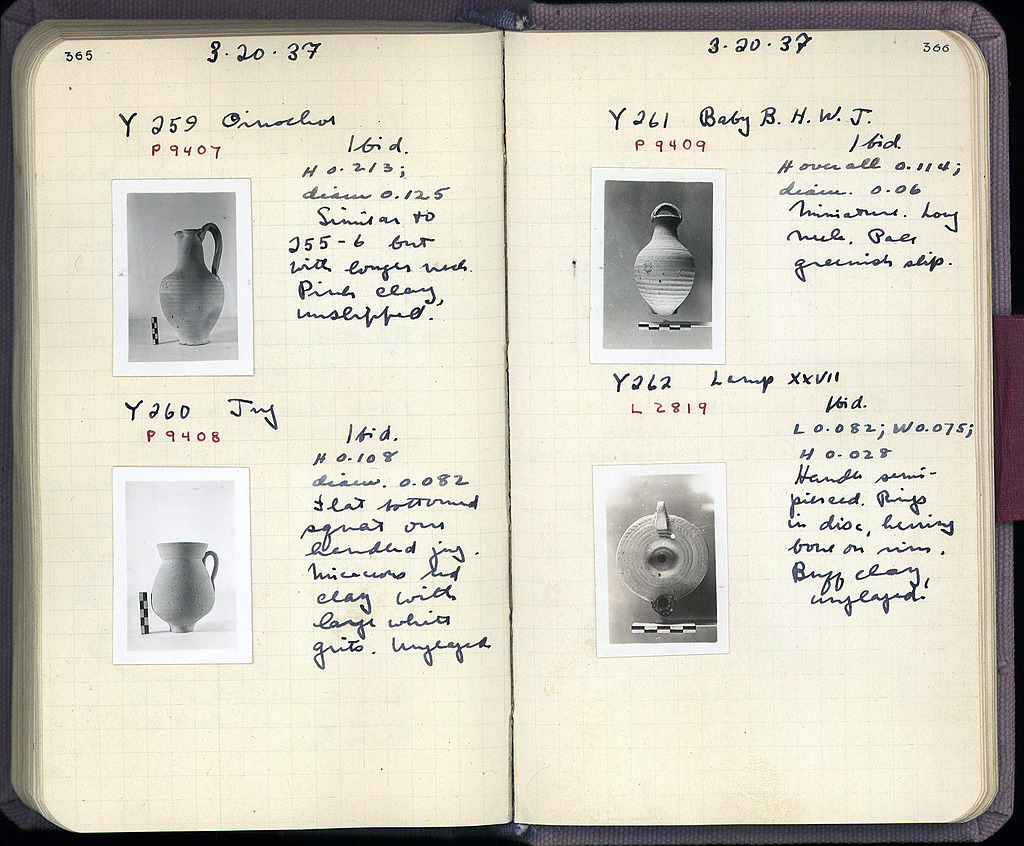 365
3·20·37
Y 259 Oinochoe
P 9407
Ibid.
H 0.213;
diam 0.125
Similar to
255-6 but
with longer neck.
Pink clay,
unslipped.
Y 260 Jug
P 9408
Ibid.
H 0.108
diam. 0.082
Flat bottomed
squat one
handled jug.
Micaceous red
clay with
large white
grits. Unglazed
3·20·37
366
Y 261 Baby B. H. W. J.
P 9409
Ibid.
H overall 0.114;
diam. 0.06
Miniature. Long
neck. Pale
greenish slip.
Y 262 Lamp XXVII
L 2819
Ibid.
L 0.082; W 0.075;
H 0.028
Handle semi-
pierced. Rings
in disc, herring
bone on rim.
Buff clay,
unglazed.